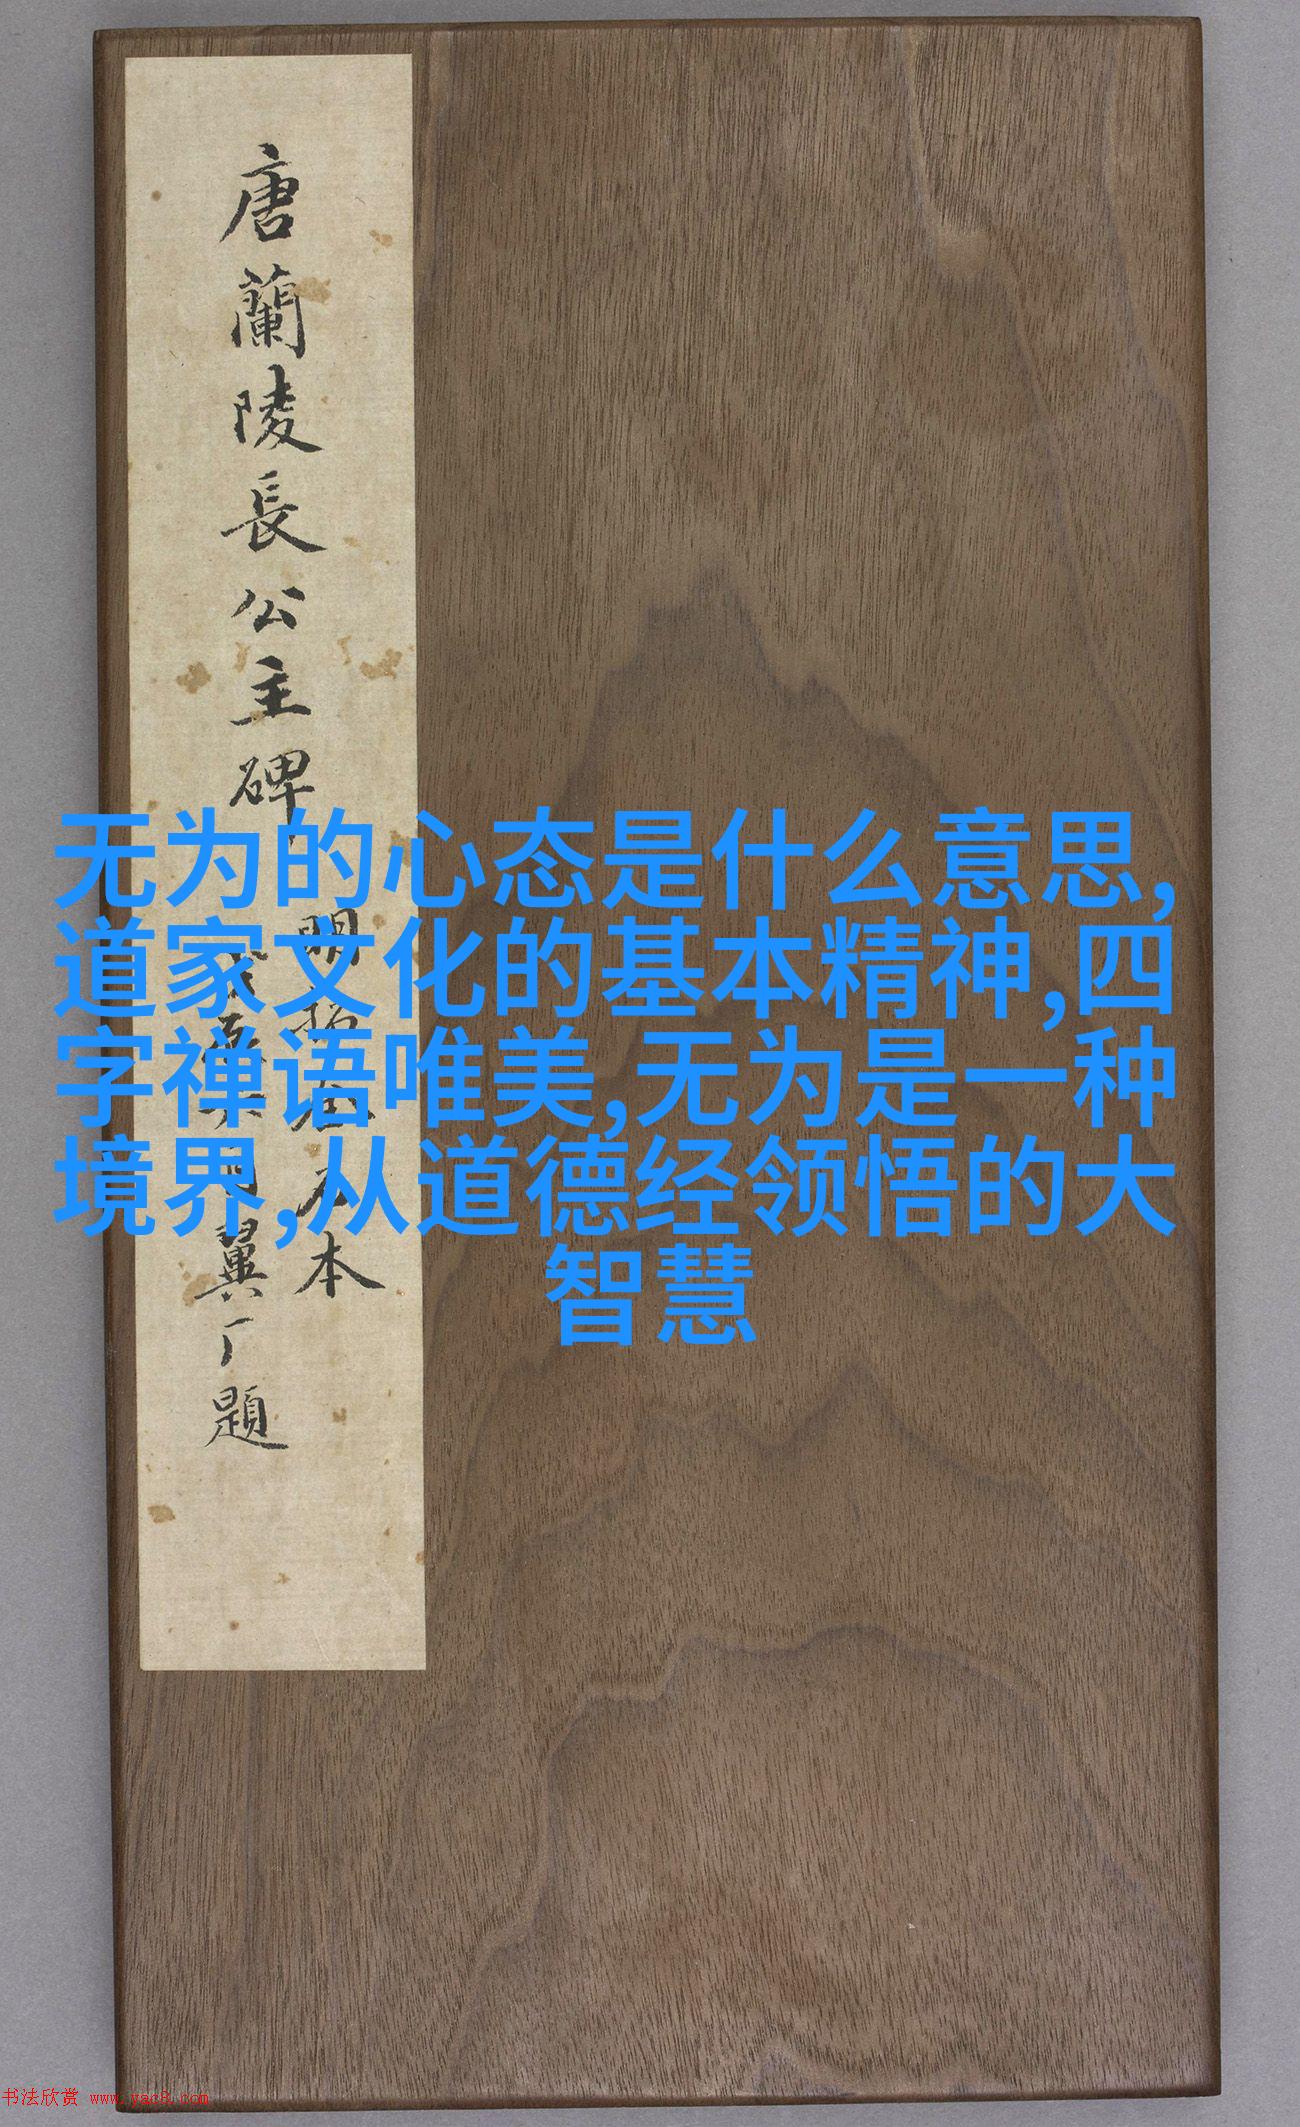 唐蘭陵長公主碑
明拓
本
翼厂題
无为的心态是什么意思,
道家文化的基本精神,四
字禅语唯美,无为是一种
境界,从道德经领悟的大
智慧
书法欣赏 www.yac8.com